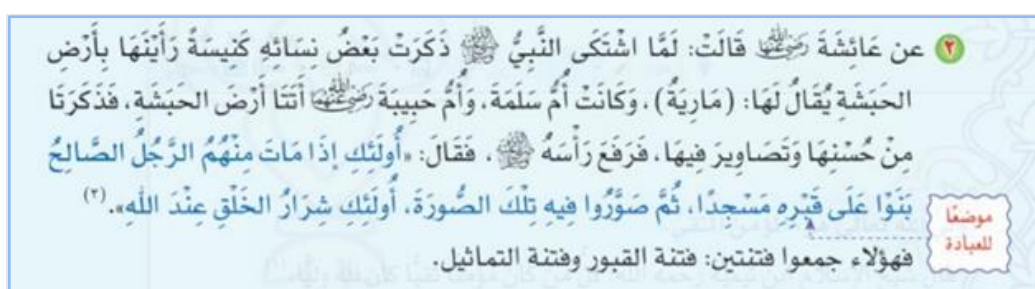 ٢ عن عَائِشَةَ رَضِيَ اللَّهُ عَنْهَا قَالَتْ: لَمَّا اشْتَكَى النَّبِيُّ ﷺ ذَكَرَتْ بَعْضُ نِسَائِهِ كَنِيسَةً رَأَيْنَهَا بِأَرْضِ
الحَبَشَةِ يُقَالُ لَهَا: (مَارِيَةُ)، وَكَانَتْ أُمُّ سَلَمَةَ، وَأُمُّ حَبِيبَةَ رَضِيَ اللَّهُ عَنْهُمَا أَتَتَا أَرْضَ الحَبَشَةِ، فَذَكَرَتَا
مِنْ حُسْنِهَا وَتَصَاوِيرَ فِيهَا، فَرَفَعَ رَأْسَهُ ﷺ، فَقَالَ: «أُولَئِكِ إِذَا مَاتَ مِنْهُمُ الرَّجُلُ الصَّالِحُ
بَنَوْا عَلَى قَبْرِهِ مَسْجِدًا، ثُمَّ صَوَّرُوا فِيهِ تِلْكَ الصُّورَةَ، أُولَئِكِ شِرَارُ الخَلْقِ عِنْدَ اللهِ».(٢)
موضعًا
للعبادة
فهؤلاء جمعوا فتنتين: فتنة القبور وفتنة التماثيل.